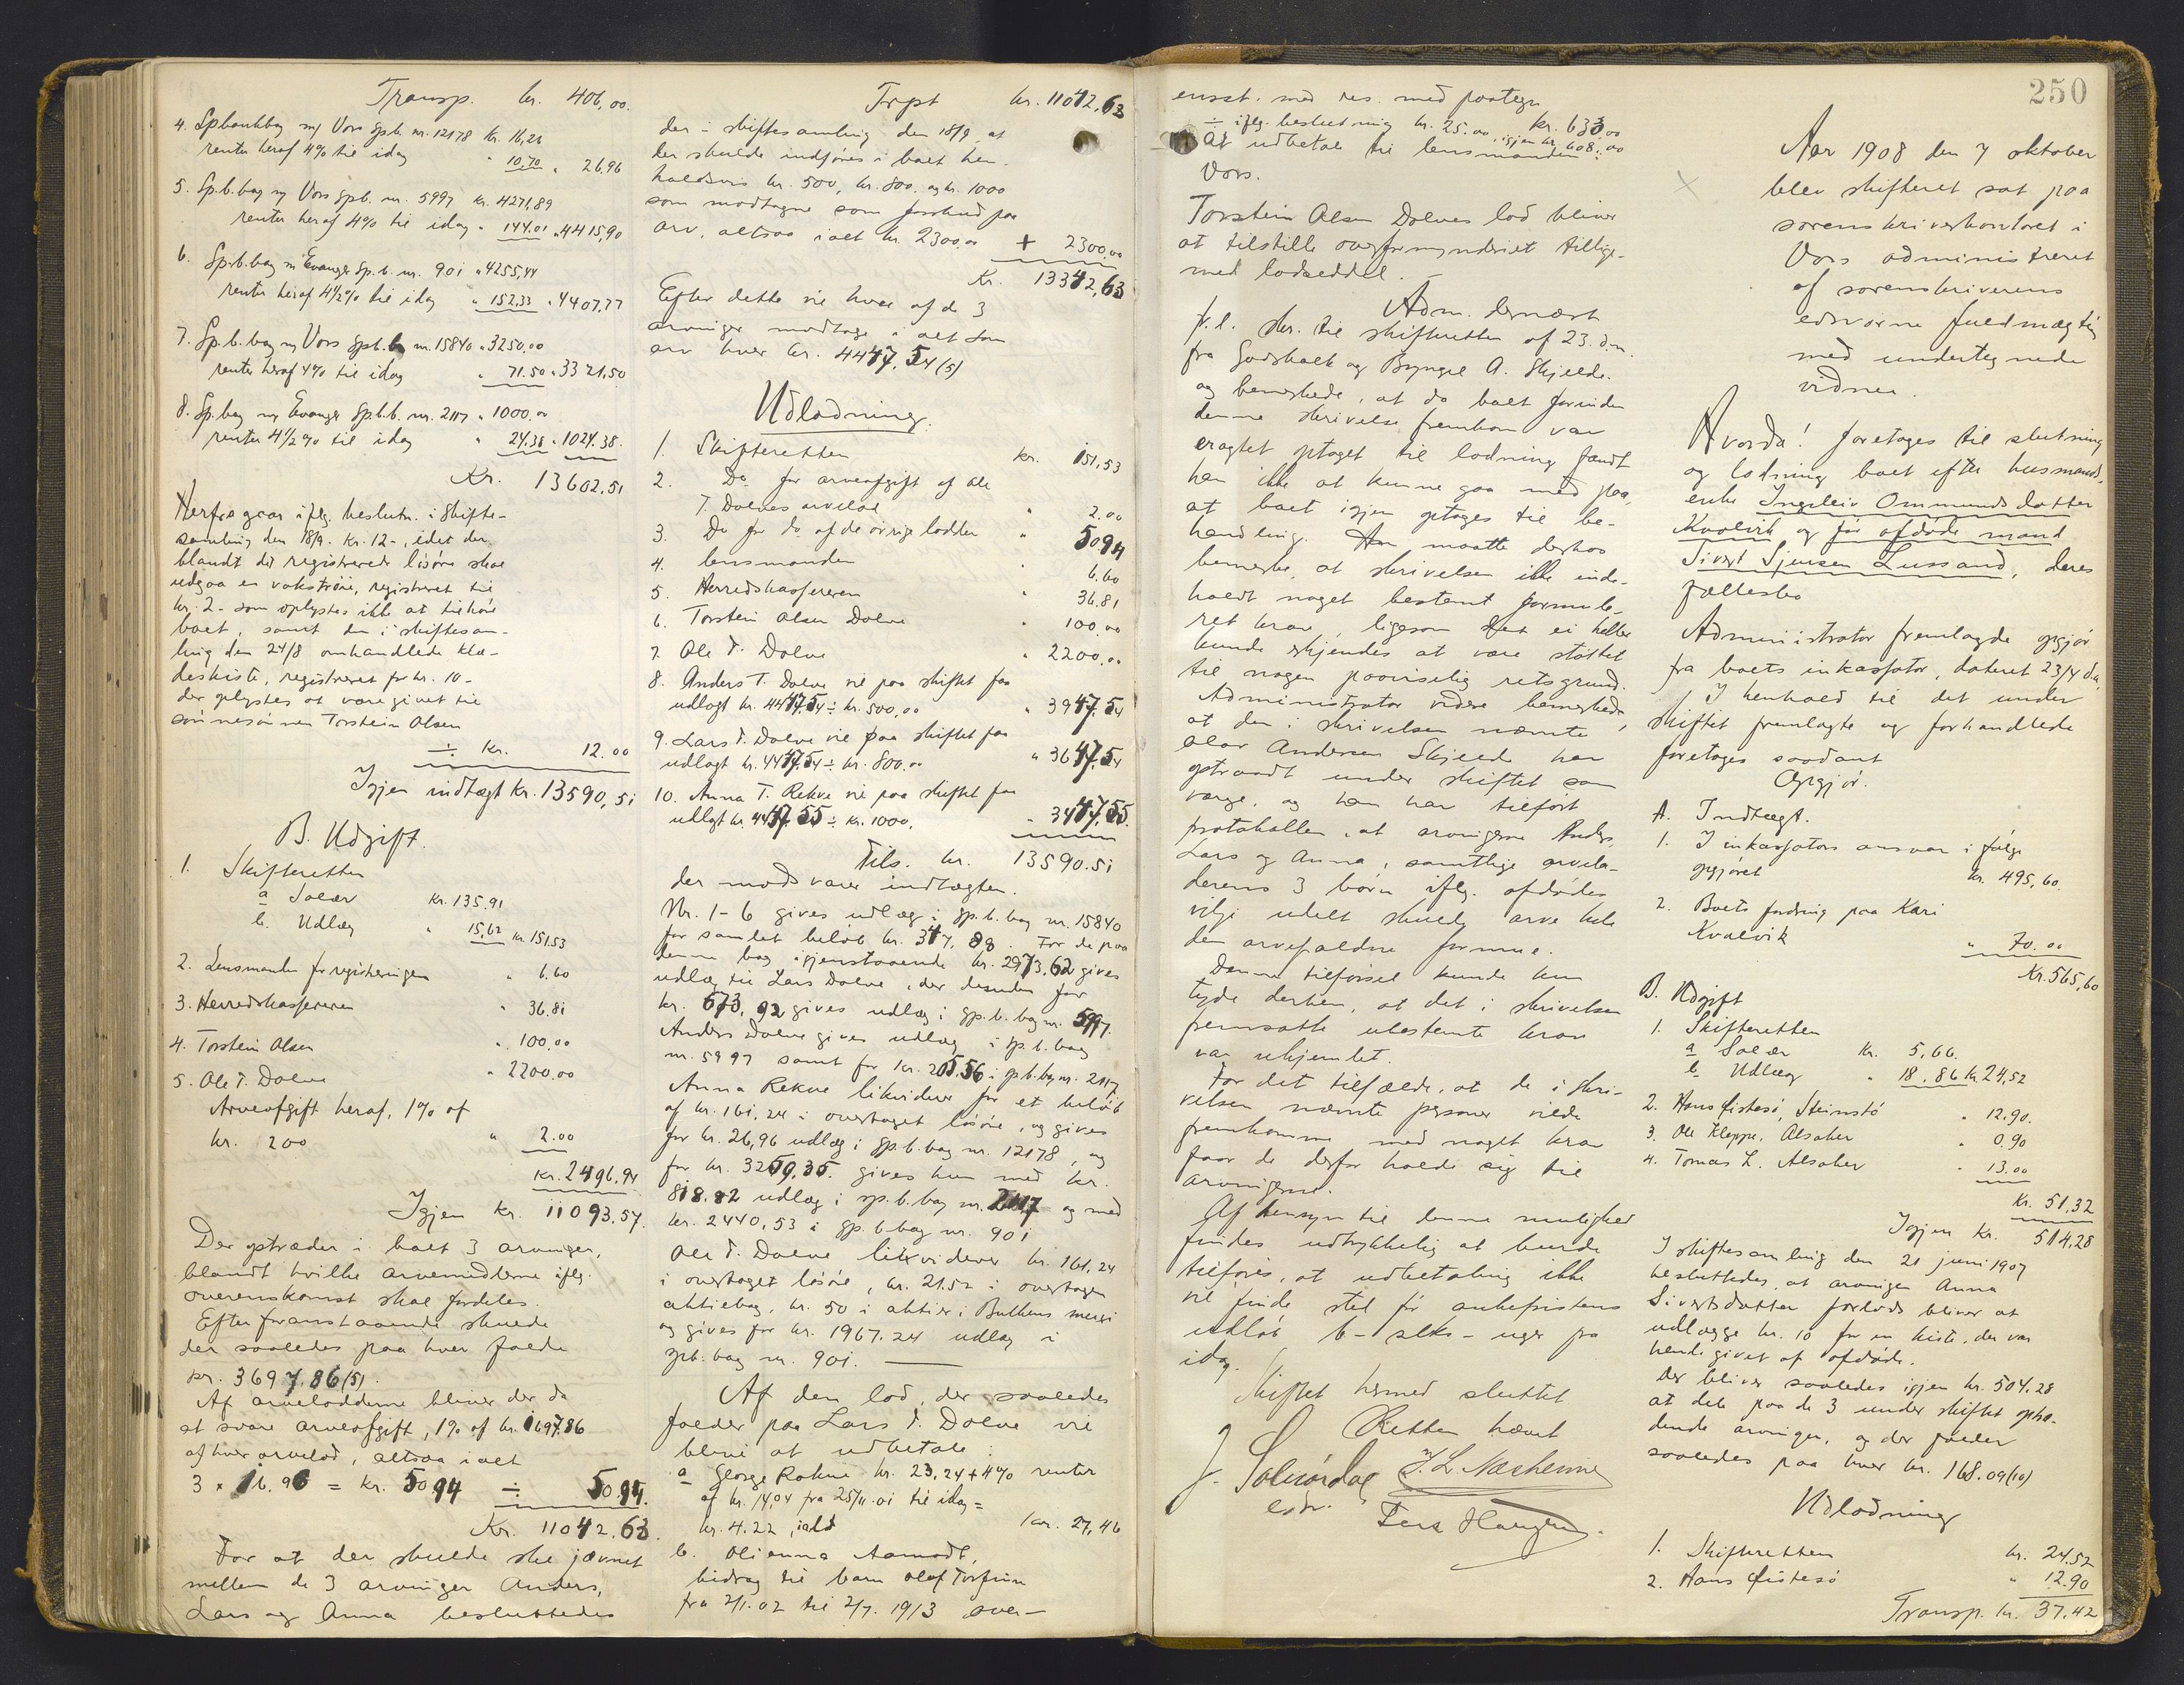 Transp. kr. 406,00.
4. Spbankbog m/ Vors Spb. nr. 12178 kr. 16,26
renter heraf 4% til idag " 10,70 " 26.96
5. Sp.b.bog m/ Vors Spb. nr. 5997 kr. 4271,89
renter heraf 4% til idag " 144.01 " 4415,90
6. Sp.b.bog m Evanger Sp.b. nr. 901 " 4255,44
renter heraf 4 1/2% til idag " 152,33 " 4407,77
7. Sp.b.bog m/ Vors Spb.b nr. 15840 " 3250,00
renter heraf 4% til idag " 71.50 " 3321,50
8. Sp.bog m/ Evanger Spb.b. nr. 2117 " 1000.00
renter 4 1/2% til idag " 24.38 " 1024.38.
Kr. 13602,51
Herfra gaar ifлg. beslutn. i skifte-
samling den 18/9. kr. 12-, idet der
blandt det registrerede løsøre skal
udgaa en vokstrøie, registreret til
kr. 2- som oplystes ikke at tilhøre
boet, samt den i skiftesam-
ling den 24/8 omhandlede klæ-
deskiste, registreret for kr. 10-
der oplystes at være givet til
sønnesønnen Torstein Olsen
÷ kr. 12.00
Igjen indtægt kr. 13590,51
B. Udgift.
1. Skifteretten
a Salær kr. 135.91
b. Udlæg " 15,62 kr. 151.53
2. Lensmanden for registreringen " 6.60
3. Herredskassereren " 36.81
4. Torstein Olsen " 100.00
5. Ole T. Dolve " 2200.00
Arveafgift heraf, 1% af
kr. 200 " 2.00
kr. 2496.94
Igjen kr. 11093.57.
Der optræder i boet 3 arvinger,
blandt hvilke arvemidlerne iflg.
overenskomst skal fordeles.
Efter foranstaaende skulde
der saaledes paa hver falde
kr. 3697.86(5).
Af arvelodderne bliver der da
at svare arveafgift, 1% af kr. 1697.86
af hver arvelod, altsaa i alt
3 x 16.98 = kr. 50.94 ÷ 50.94.
Kr. 11042.63.
For at der skulde ske jævnet
mellem de 3 arvinger Anders,
Lars og Anna besluttedes
Trpt kr. 11042.63
der i skiftesamling den 18/9, at
der skulde indføres i boet hen-
holdsvis kr. 500, kr. 800. og kr. 1000
som modtagne som forskud paa
arv, altsaa ialt kr. 2300.00 + 2300.00
Kr. 13342,63
Efter dette vil hver af de 3
arvinger modtage i alt som
arv hver kr. 4447.54(5)
Udlodning.
1. Skifteretten kr. 151,53
2. Do for arveafgift af Ole
T. Dolves arvelod " 2.00
3. Do for do af de øvrige lodder " 50.94
4. lensmanden " 6.60
5. Herredskassereren " 36.81
6. Torstein Olsen Dolve " 100.00
7. Ole T. Dolve " 2200.00
8. Anders T. Dolve vil paa skiftet faa
udlagt kr. 4447.54 ÷ kr. 500,00 " 3947.54
9. Lars T. Dolve vil paa skiftet faa
udlagt kr. 4447.54 ÷ kr. 800.00 " 3647.54
10. Anna T. Rekve vil paa skiftet faa
udlagt kr. 4447.55 ÷ kr. 1000. " 3447.55.
Tils. kr. 13590.51
der modsvarer indtægten.
Nr. 1-6 gives udlæg i sp.b.bog nr. 15840
for samlet beløb kr. 347,88. For de paa
denne bog igjenstaaende kr. 2973.62 gives
udlæg til Lars Dolve, der desuden for
kr. 673,92 gives udlæg i sp.b.bog nr. 5997.
Anders Dolve gives udlæg i sp.b.bog
nr. 5997 samt for kr. 205.56 i sp.b.bog nr. 2117
Anna Rekve likviderer for et beløb
af kr. 161,24 i overtaget løsøre, og gives
for kr. 26,96 udlæg i sp.b.bog nr. 12178, og
for kr. 3259.35. gives hun med kr.
818.82 udlæg i sp.b.bog nr. 2117 og med
kr. 2440,53 i sp.b.bog nr. 901
Ole T. Dolve likviderer kr. 161,24
i overtaget løsøre, kr. 21.52 i overtagen
aktiebog, kr. 50 i aktier i Bulkens meieri
og gives for kr. 1967.24 udlæg i
spb.bog nr. 901.
Af den lod, der saaledes
falder paa Lars T. Dolve vil
blive at udbetale:
a George Rokne kr. 23,24 + 4% renter
af kr. 14,04 fra 25/11.01 til idag =
kr. 4.22, ialt kr. 27,46
b. Olianna Aamodt,
bidrag til barn Olaf Torfinn
fra 2/1.02 til 2/7. 1913 over-
250
ensst. med res. med paategn kr. 633,00
÷ iflg. beslutning kr. 25.00, igjen kr. 608.00
at udbetale til lensmanden
Vors.
Torstein Olsen Dolves lod bliver
at tilstille overformynderiet tillige-
med lodseddel.
Adm. dernæst
f.l. skr. til skifteretten af 23. d.m.
fra Godskalk og Brynjel A. Skjelde.
og bemerkede, at da boet forinden
denne skrivelse fremkom var
eragtet optaget til lodning fandt
han ikke at kunne gaa med paa,
at boet igjen optages til be-
handling. Han maatte derhos
bemerke, at skrivelsen ikke inde-
holdt noget bestemt formule-
ret krav, ligesom det ei heller
kunde skjendes at være støttet
til nogen paaviselig retsgrund.
Administrator videre bemerkede,
at den i skrivelsen nævnte
Olav Andersen Skjelde har
optraadt under skiftet som
verge, og han har tilført
protokollen, at arvingerne Anders,
Lars og Anna, samtlige arvela-
derens 3 børn iflg. afdødes
vilje udelt skulde arve hele
den arvefaldne formue.
Denne tilførsel kunde kun
tyde derhen, at det i skrivelsen
fremsatte ubestemte krav
var uhjemlet.
For det tilfælde, at de i skri-
velsen nævnte personer vilde
fremkomme med noget krav
faar de derfor holde sig til
arvingerne.
Af hensyn til denne mulighed
findes udtrykkelig at burde
tilføres, at udbetaling ikke
vil finde sted før ankefristens
udløb 6- seks- uger fra
idag.
Skiftet hermed sluttet
Retten hævet
Aar 1908 den 7 oktober
blev skifteret sat paa
sorenskriverkontoret i
Vors administreret
af sorenskriverens
edsvorne fuldmægtig
med undertegnede
vidner.
Hvorda! foretoges til slutning
og lodning boet efter husmands-
enke Ingeleiv Ommundsdatter
Kvalvik og før afdøde mand
Sivert Sjursen Lussand, deres
fællesbo
Administrator fremlagde opgjør
fra boets inkassator, dateret 23/4 d.a.
I henhold til det under
skiftet fremlagte og forhandlede
foretoges saadant
Opgjør.
A. Indtægt.
1. I inkassators ansvar i følge
opgjøret kr. 495,60.
2. Boets fordring paa Kari
Kvalvik " 70.00
Kr. 565,60
B. Udgift
1. Skifteretten
a Salær kr. 5,66.
b. Udlæg " 18.86 kr. 24,52
2. Hans Fistesø, Steinstø " 12.90.
3. Ole Kleppe, Alsaker " 0,90
4. Tomas L. Alsaker " 13.00
kr. 51,32
Igjen kr. 514,28
I skiftesamling den 21 juni 1907
besluttedes, at arvingen Anna
Sivertsdatter forlods bliver at
udlægge kr. 10 for en kiste, der var
hende givet af afdøde.
Der bliver saaledes igjen kr. 504.28
at dele paa de 3 under skiftet optræ-
dende arvinger, og der falder
saaledes paa hver kr. 168.09(10)
Udlodning
1. Skifteretten kr. 24.52
2. Hans Fistesø " 12.90
Transp. kr. 37.42